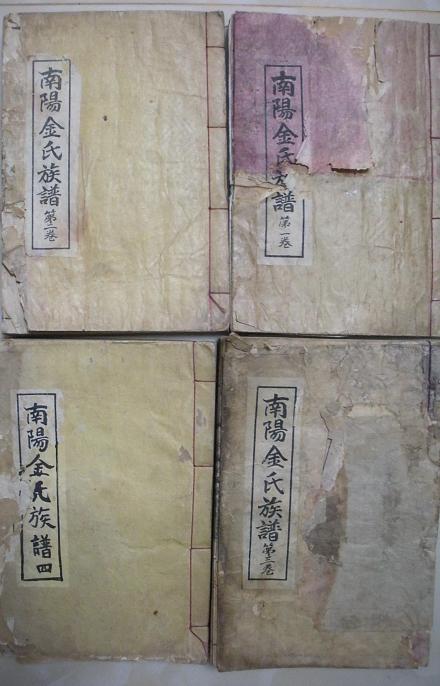 南陽金氏族譜 第二卷
南陽金氏族譜 第一卷
南陽金氏族譜 四
南陽金氏族譜 第三卷